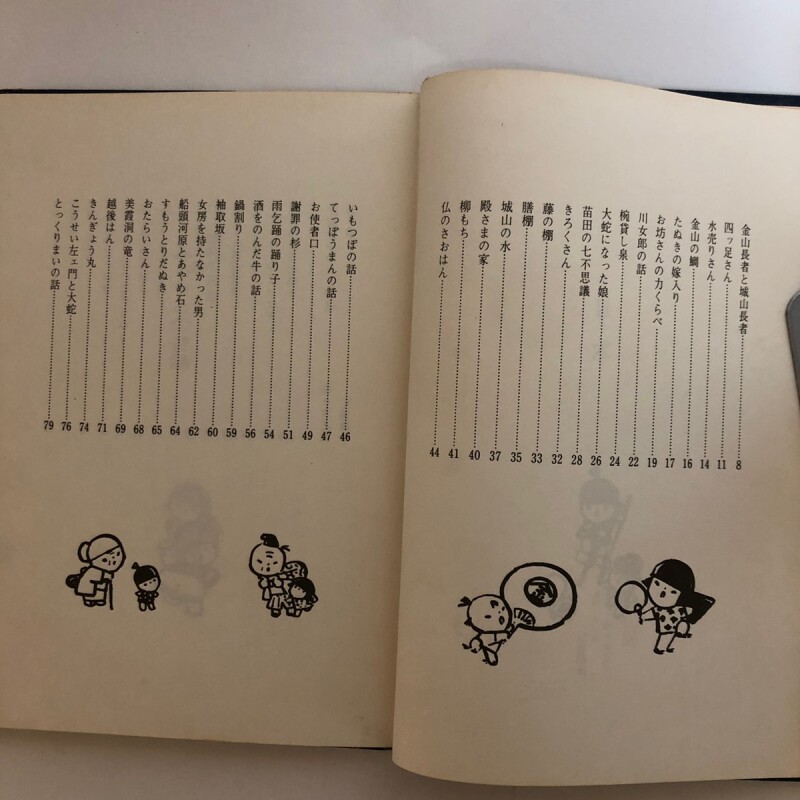 金山長者と城山長者……8
四ッ足さん……11
水売りさん……14
金山の鯛……16
たぬきの嫁入り……17
お坊さんの力くらべ……19
川女郎の話……22
椀貸し泉……24
大蛇になった娘……26
苗田の七不思議……28
きろくさん……32
藤の棚……33
膳棚……35
城山の水……37
殿さまの家……40
柳もち……41
仏のさおはん……44
いもつぼの話……46
てっぽうまんの話……47
お使者口……49
謝罪の杉……51
雨乞踊の踊り子……54
酒をのんだ牛の話……56
鍋割り……59
袖取坂……60
女房を持たなかった男……62
船頭河原とあやめ石……64
すもうとりだぬき……65
おたらいさん……68
美霞洞の竜……69
越後はん……71
きんぎょう丸……74
こうせい左ェ門と大蛇……76
とっくりまいの話……79